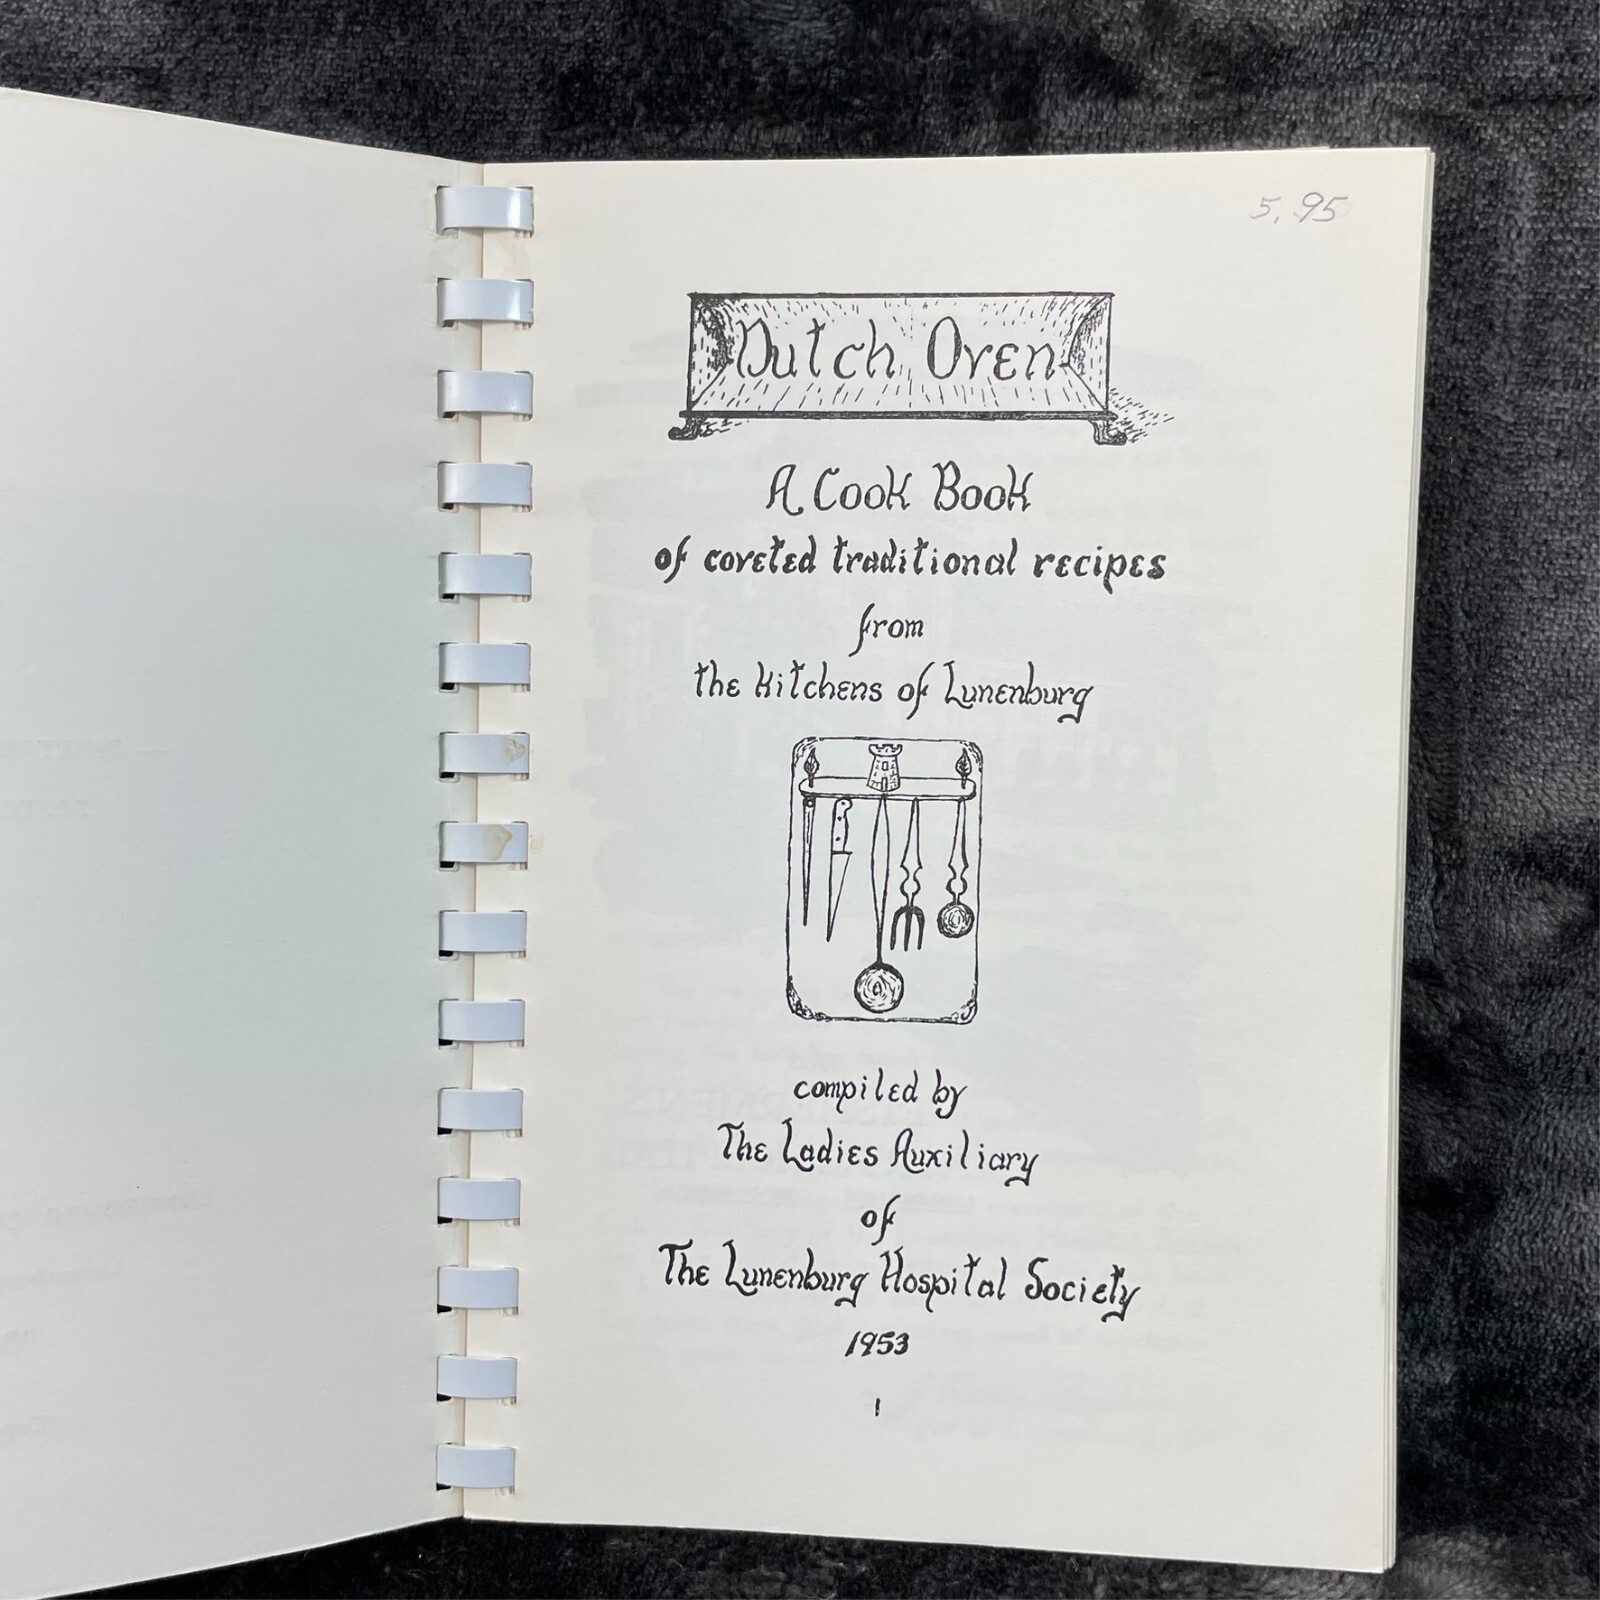 5.95
Dutch Oven
A Cook Book
of coveted traditional recipes
from
the kitchens of Lunenburg
compiled by
The Ladies Auxiliary
of
The Lunenburg Hospital Society
1953
1